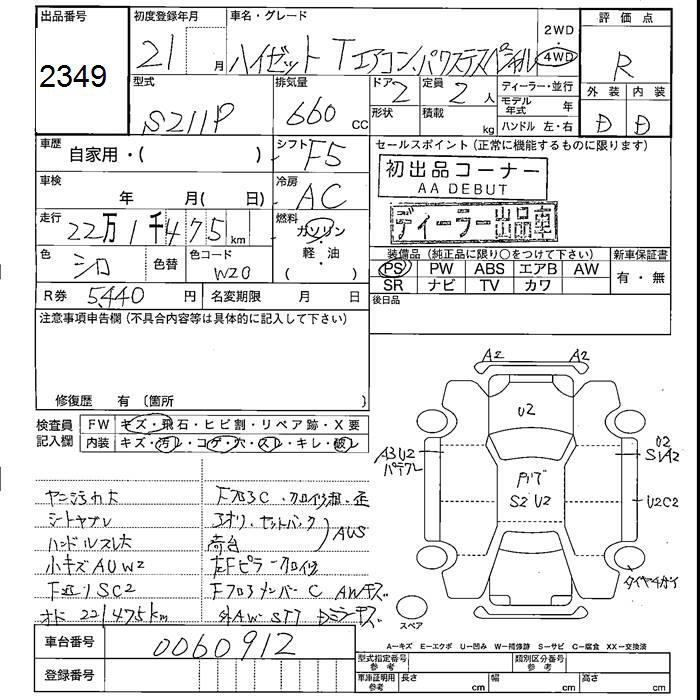 出品番号
2349
初度登録年月
21 月
車名・グレード
ハイゼット T エアコン.パワステスペシャル
2WD
4WD
評価点
R
外装 内装
D D
型式
S211P
排気量
660 CC
ドア 2
定員 2 人
形状
積載 kg
ディーラー・並行
モデル年式 年
ハンドル 左・右
車歴
自家用・( )
シフト F5
セールスポイント(正常に機能するものに限ります)
初出品コーナー
AA DEBUT
ディーラー出品車
車検
年 月( 日)
冷房 AC
走行
22万1千475 km
燃料
ガソリン
・
軽・油
( )
色 シロ
色替
色コード W20
装備品(純正品に限り○をつけて下さい)
新車保証書
PS PW ABS エアB AW
SR ナビ TV カワ
有・無
R券 5,440 円
名変期限 月 日
後日品
注意事項申告欄(不具合内容等は具体的に記入して下さい)
修復歴 有 〔箇所 〕
検査員記入欄
FW キズ・飛石・ヒビ割・リペア跡・X要
内装 キズ・汚レ・コゲ・穴・スレ・キレ・破レ
ヤニ汚れ大
シートヤブレ
ハンドルスレ大
小キズAUW2
SC2
オド 221475km
荷台
AUS
車台番号 0060912
登録番号
A2 A2
U2
A3U2
U2
S1A2
S2 U2
U2C2
タイヤ4カケ
スペア
A…キズ E…エクボ U…凹み W…補修跡 S…サビ C…腐食 XX…交換済
型式指定番号 参考
類別区分番号 参考
車庫証明用 参考
長さ cm
幅 cm
高さ cm